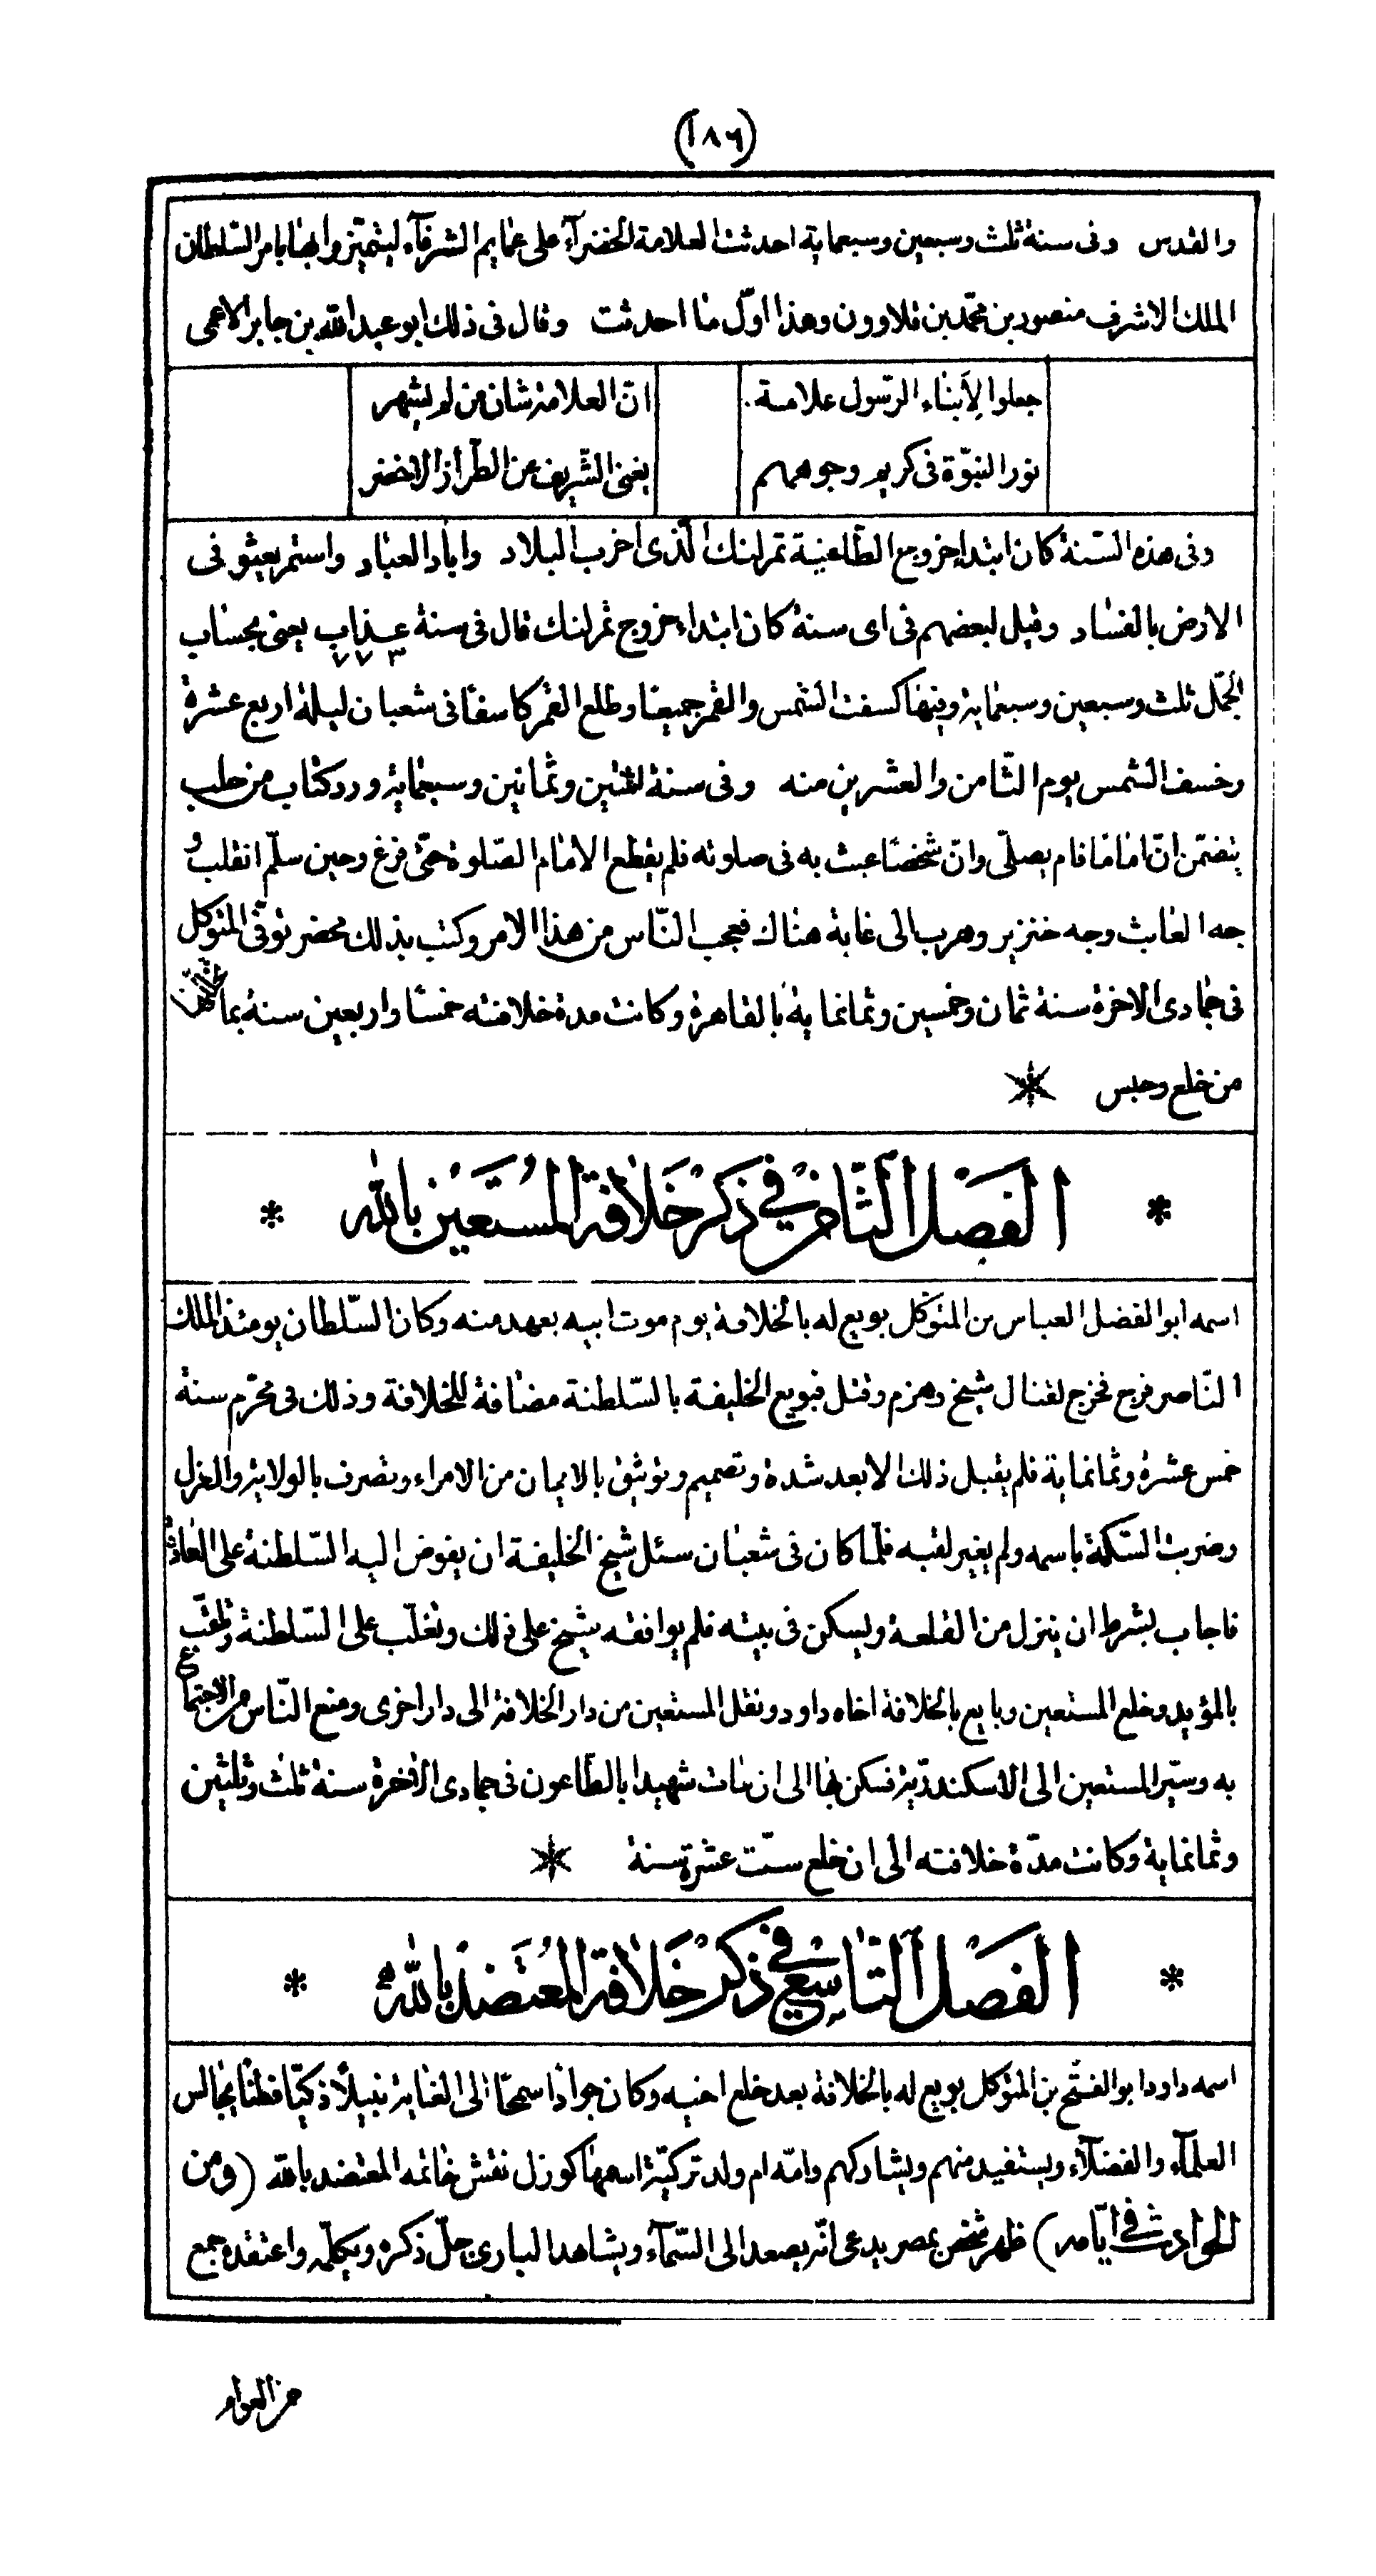 (١٨٦)
والقدس وفى سنة ثلث وسبعين وسبعماية احدثت العلامة الخضرآء على عمايم الشرفآء ليتميّزوا بها بامر السّلطان
الملك الاشرف منصور بن محمّد بن قلاوون وهذا اوّل ما احدثت وقال فى ذلك ابو عبد الله بن جابر الاعمى
جعلوا لأبناء الرّسول علامة انّ العلامة شان من لم يشهر
نور النبوّة فى كريم وجوههم يغنى الشّريف عن الطّراز الاخضر
وفى هذه السّنة كان ابتداء خروج الطّاغية تمرلنك الّذى اخرب البلاد واباد العباد واستمر يعثو فى
الارض بالفساد وقيل لبعضهم فى اى سنة كان ابتداء خروج تمرلنك قال فى سنة عذاب يعنى بحساب
٧٧٣
الجمّل ثلث وسبعين وسبعماية وفيها كسفت الشّمس والقمر جميعا وطلع القمر كاسفا فى شعبان ليلة اربع عشرة
وخسف الشّمس يوم الثّامن والعشرين منه وفى سنة اثنتين وثمانين وسبعماية ورد كتاب من حلب
يتضمّن انّ اماما قام يصلّى وانّ شخصا عبث به فى صلوته فلم يقطع الامام الصّلوة حتّى فرغ وحين سلّم انقلب و
جه العابث وجه خنزير وهرب الى غابة هناك فعجب النّاس من هذا الامر وكتب بذلك محضر توفّى المتوكّل
فى جمادى الاخرة سنة ثمان وخمسين وثمانماية بالقاهرة وكانت مدة خلافته خمسا واربعين سنة بما
من خلع وحبس
الفصل الثّامن في ذكر خلافة المستعين بالله
اسمه ابو الفضل العباس بن المتوكّل بويع له بالخلافة يوم موت ابيه بعهد منه وكان السّلطان يومئذ الملك
النّاصر فرج فخرج لقتال شيخ وهزم وقتل فبويع الخليفة بالسّلطنة مضافة للخلافة وذلك فى محرّم سنة
خمس عشرة وثمانماية فلم يقبل ذلك الا بعد شدة وتصميم وتوثيق بالايمان من الامراء وتصرف بالولاية والعزل
وضربت السّكة باسمه ولم يغير لقبه فلمّا كان فى شعبان سئل شيخ الخليفة ان يفوض اليه السّلطنة على العادة
فاجاب بشرط ان ينزل من القلعة ويسكن فى بيته فلم يوافقه شيخ على ذلك وتغلّب على السّلطنة وتلقّب
بالمؤيد وخلع المستعين وبايع بالخلافة اخاه داود ونقل المستعين من دار الخلافة الى دار اخرى ومنع النّاس من الاجتماع
به وسيّر المستعين الى الاسكندريّة فسكن بها الى ان مات شهيدا بالطّاعون فى جمادى الاخرة سنة ثلث وثلثين
وثمانماية وكانت مدّة خلافته الى ان خلع ستّ عشرة سنة
الفصل التّاسع في ذكر خلافة المعتضد بالله
اسمه داود ابو الفتح بن المتوكل بويع له بالخلافة بعد خلع اخيه وكان جوادا سمحا الى الغاية نبيلا ذكيّا فطنا يجالس
العلمآء والفضلآء ويستفيد منهم ويشاركهم وامّه ام ولد تركيّة اسمها كوزل نقش خاتمه المعتضد بالله (ومن
الحوادث في ايّامه) ظهر شخص بمصر يدعى انّه يصعد الى السّمآء ويشاهد البارى جلّ ذكره ويكلّمه واعتقده جمع
من العوام